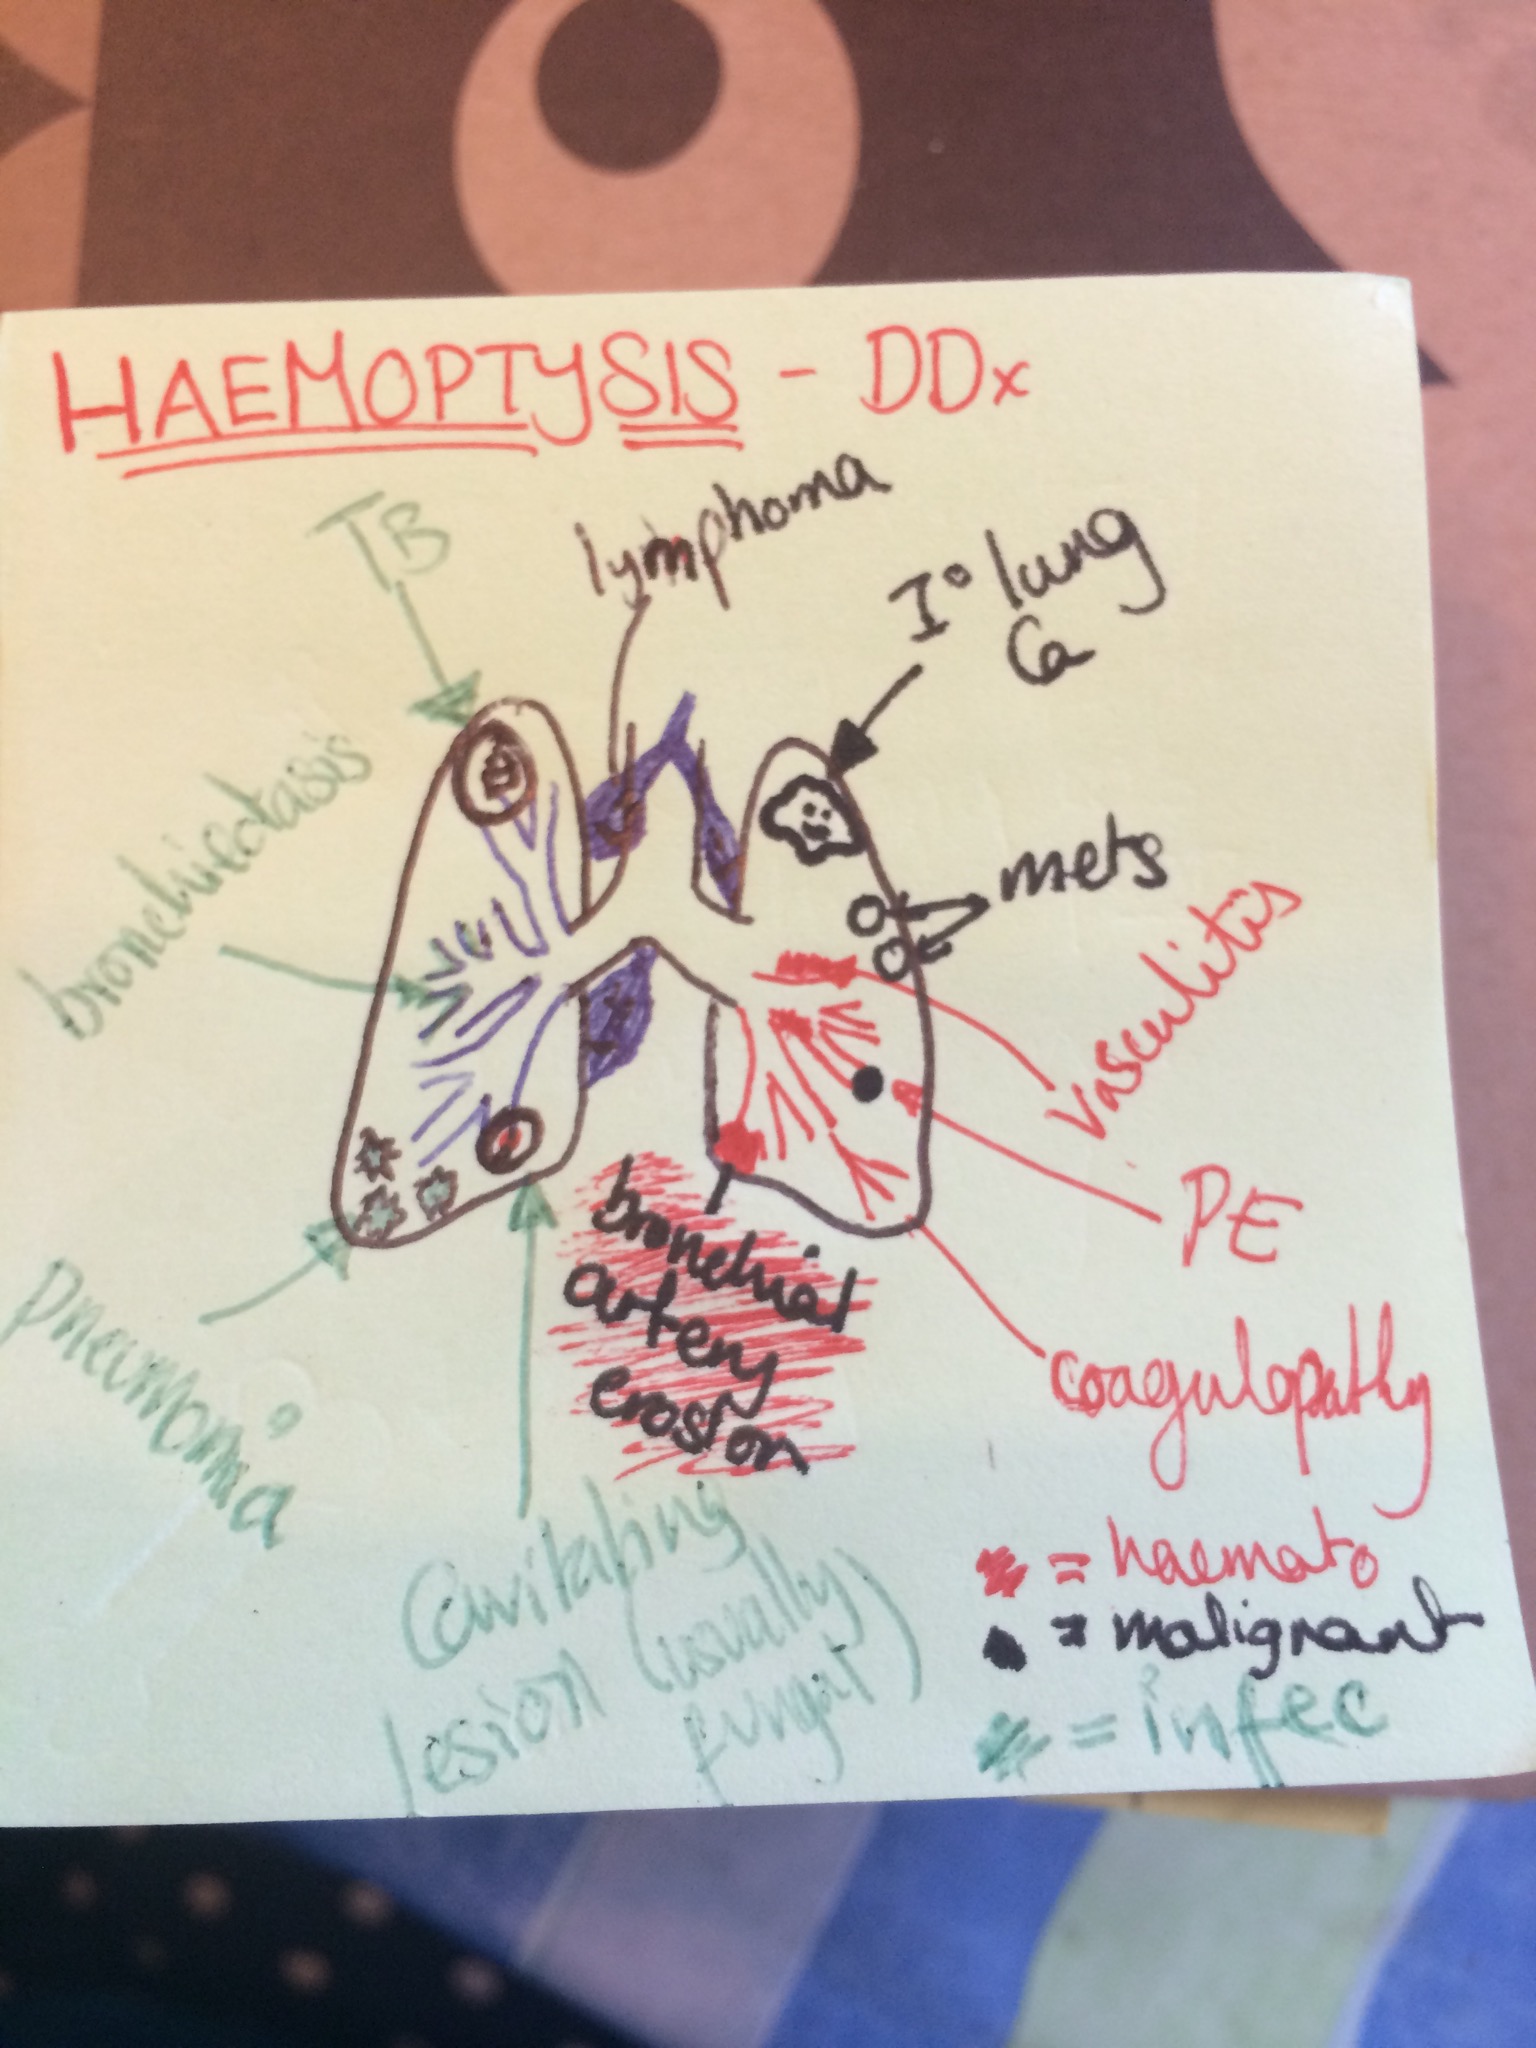 HAEMOPTYSIS - DDx
TB
lymphoma
I° lung
Ca
bronchiectasis
mets
vasculitis
PE
pneumonia
bronchial
artery
erosion
coagulopathy
Cavitating
lesion (usually
fungal)
= haemato
= malignant
= infec